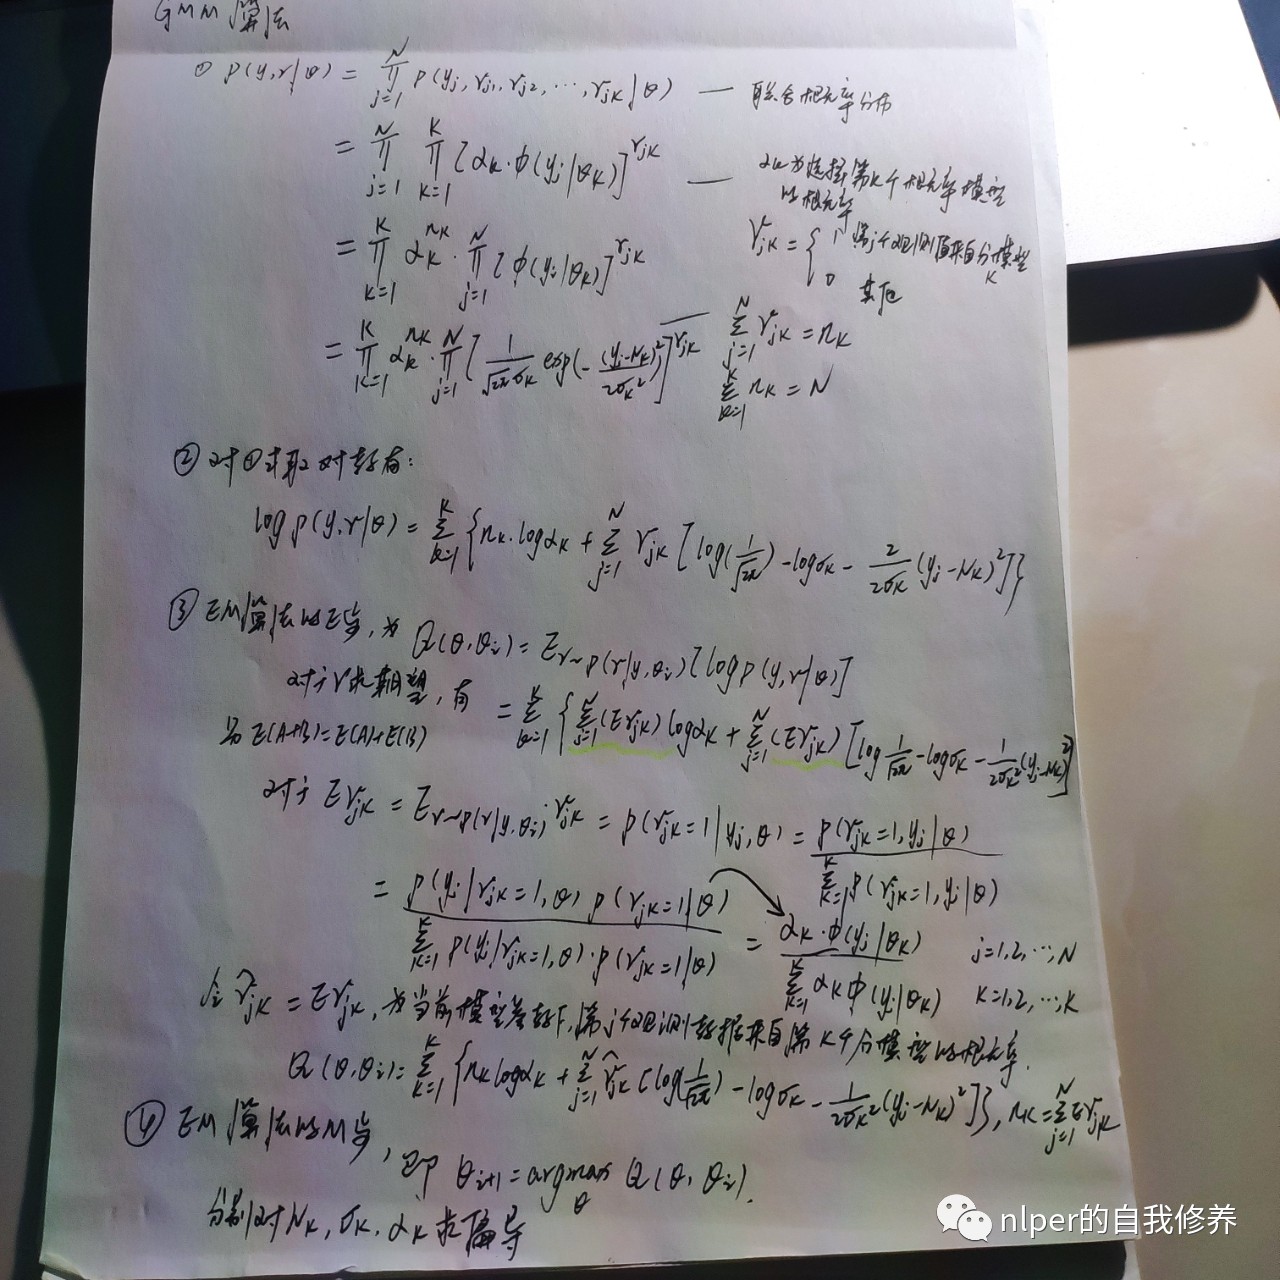 GMM算法
① P(y,γ|θ) = ∏_{j=1}^{N} P(y_j, γ_{j1}, γ_{j2}, ⋯, γ_{jK}|θ) — 联合概率分布
= ∏_{j=1}^{N} ∏_{k=1}^{K} [α_k·φ(y_j|θ_k)]^{γ_{jk}} — α_k为选择第K个概率模型
的概率
= ∏_{k=1}^{K} α_k^{n_k}·∏_{j=1}^{N} [φ(y_j|θ_k)]^{γ_{jk}}
γ_{jk} = { 1 第j个观测值来自分模型K
0 其他
= ∏_{k=1}^{K} α_k^{n_k}·∏_{j=1}^{N} [\frac{1}{\sqrt{2π}σ_k} exp(-\frac{(y_j-μ_k)^2}{2σ_k^2})]^{γ_{jk}} — ∑_{j=1}^{N} γ_{jk} = n_k
∑_{k=1}^{K} n_k = N
② 对①求取对数有:
log P(y,γ|θ) = ∑_{k=1}^{K} {n_k·logα_k + ∑_{j=1}^{N} γ_{jk} [log(\frac{1}{\sqrt{2π}}) - logσ_k - \frac{2}{2σ_k}(y_j-μ_k)^2]}
③ EM算法的E步, 为 Q(θ,θ_i) = E_{γ~P(γ|y,θ_i)}[log P(y,γ|θ)]
对于γ求期望, 有 = ∑_{k=1}^{K} {∑_{j=1}^{N}(Eγ_{jk}) logα_k + ∑_{j=1}^{N}(Eγ_{jk}) [log\frac{1}{\sqrt{2π}} - logσ_k - \frac{1}{2σ_k^2}(y_j-μ_k)^2]
E(A+B)=E(A)+E(B)
对于 Eγ_{jk} = E_{γ~P(γ|y,θ_i)}γ_{jk} = P(γ_{jk}=1|y_j,θ) = \frac{P(γ_{jk}=1,y_j|θ)}{∑_{k=1}^{K} P(γ_{jk}=1,y_j|θ)}
= \frac{P(y_j|γ_{jk}=1,θ) P(γ_{jk}=1|θ)}{∑_{k=1}^{K} P(y_j|γ_{jk}=1,θ)·P(γ_{jk}=1|θ)} = \frac{α_k·φ(y_j|θ_k)}{∑_{k=1}^{K} α_k φ(y_j|θ_k)} j=1,2,⋯,N
k=1,2,⋯,K
令 \hat{γ}_{jk} = Eγ_{jk}, 为当前模型参数下,第j个观测数据来自第K个分模型的概率.
Q(θ,θ_i) = ∑_{k=1}^{K} {n_k logα_k + ∑_{j=1}^{N} \hat{γ}_{jk} [log(\frac{1}{\sqrt{2π}}) - logσ_k - \frac{1}{2σ_k^2}(y_j-μ_k)^2]}, n_k = ∑_{j=1}^{N} Eγ_{jk}
④ EM算法的M步, 即 θ_{i+1} = argmax_θ Q(θ,θ_i).
分别对μ_k, σ_k, α_k求偏导
nlper的自我修养